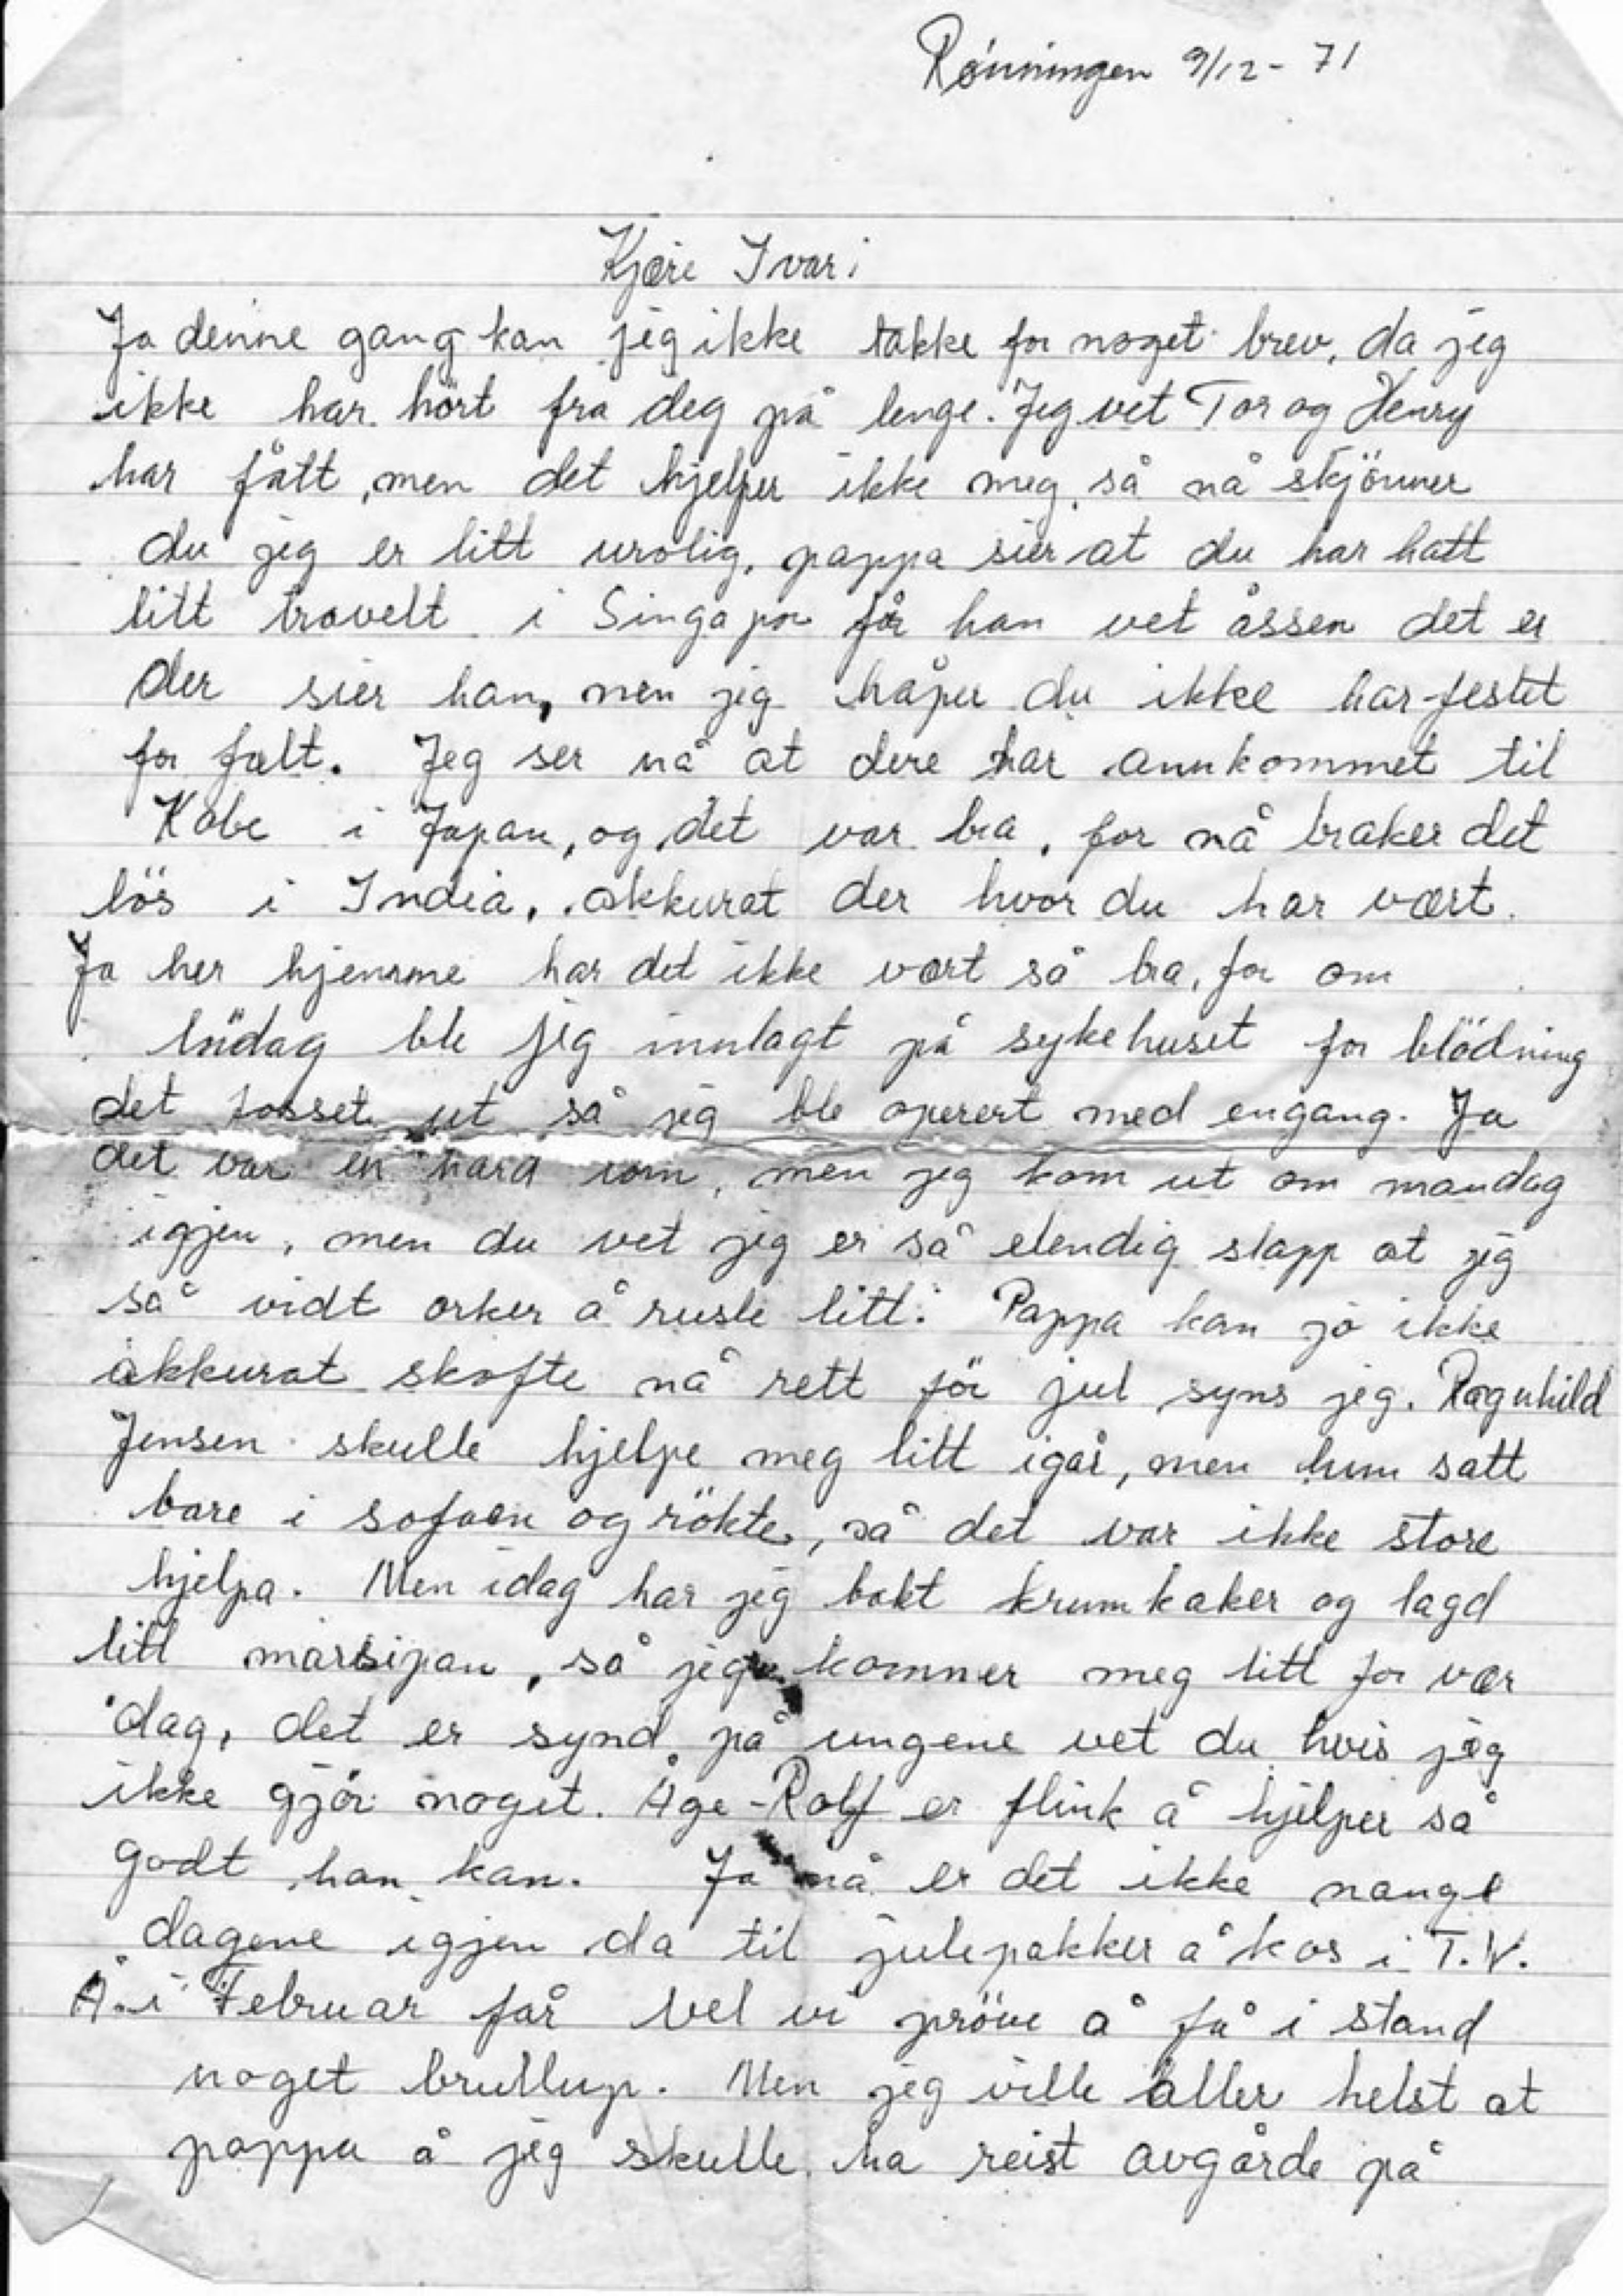 Rønningen 9/12 - 71
Kjære Ivar;
Ja denne gang kan jeg ikke takke for noget brev, da jeg
ikke har hört fra deg på lenge. Jeg vet Tor og Henry
har fått, men det hjelper ikke meg, så nå skjönner
du jeg er litt urolig, pappa sier at du har hatt
litt travelt i Singapor får han vet åssen det er
der sier han, men jeg håper du ikke har festet
for falt. Jeg ser nå at dere har annkommet til
Kobe i Japan, og det var bra, for nå braker det
lös i India, akkurat der hvor du har vært.
Ja her hjemme har det ikke vært så bra, for om
lödag ble jeg innlagt på sykehuset for blödning
det fosset ut så jeg ble operert med engang. Ja
det var en hard, men jeg kom ut om mandag
igjen, men du vet jeg er så elendig slapp at jeg
så vidt orker å rusle litt. Pappa kan jo ikke
akkurat skofte nå rett för jul syns jeg. Ragnhild
Jensen skulle hjelpe meg litt igår, men hun satt
bare i sofaen og rökte, så det var ikke store
hjelpa. Men idag har jeg bakt krumkaker og lagd
litt marsipan, så jeg kommer meg litt for vær
dag, det er synd på ungene vet du hvis jeg
ikke gjör noget. Åge-Rolf er flink å hjelper så
godt han kan. Ja nå er det ikke mange
dagene igjen da til julepakker å kos i T.V.
Å i Februar får vel vi pröve å få i stand
noget brullup. Men jeg ville aller helst at
pappa å jeg skulle ha reist avgårde på